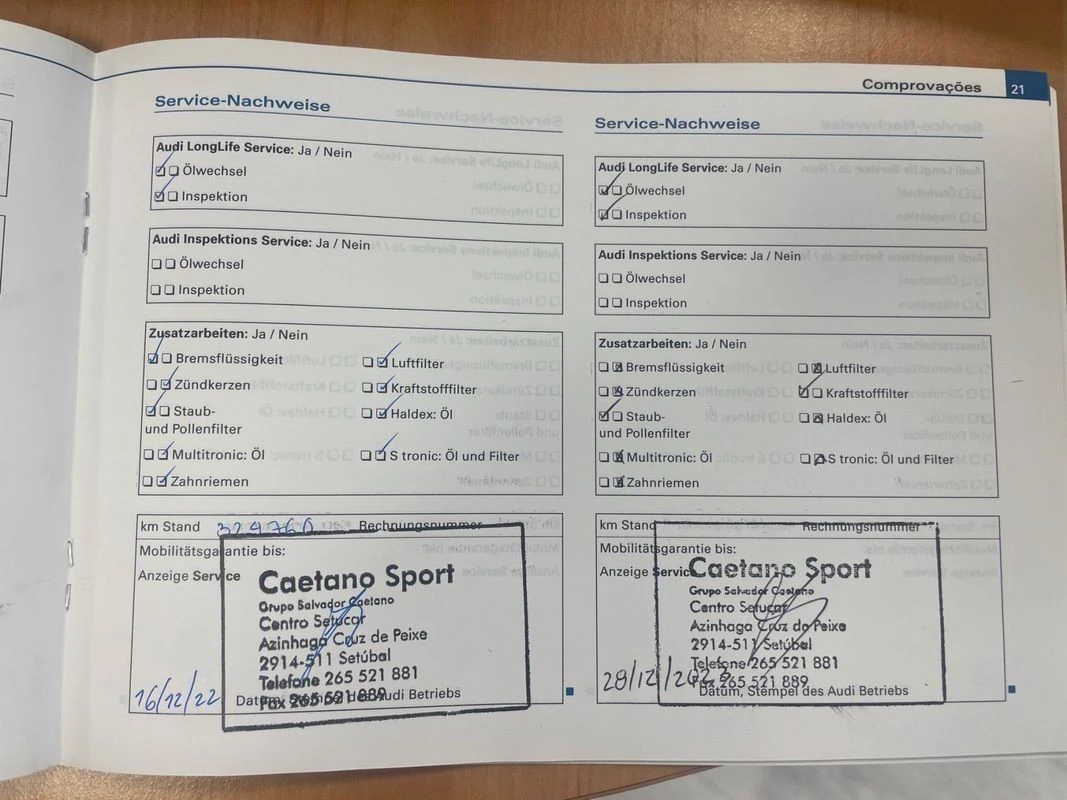 Comprovações 21
Service-Nachweise
Audi LongLife Service: Ja / Nein
Ölwechsel
Inspektion
Audi Inspektions Service: Ja / Nein
Ölwechsel
Inspektion
Zusatzarbeiten: Ja / Nein
Bremsflüssigkeit Luftfilter
Zündkerzen Kraftstofffilter
Staub- Haldex: Öl
und Pollenfilter
Multitronic: Öl S tronic: Öl und Filter
Zahnriemen
km Stand 324760 Rechnungsnummer
Mobilitätsgarantie bis:
Anzeige Service
Caetano Sport
Grupo Salvador Caetano
Centro Setucar
Azinhaga Cruz de Peixe
2914-511 Setúbal
Telefone 265 521 881
Fax 265 521 889
16/12/22
Datum, Stempel des Audi Betriebs
Service-Nachweise
Audi LongLife Service: Ja / Nein
Ölwechsel
Inspektion
Audi Inspektions Service: Ja / Nein
Ölwechsel
Inspektion
Zusatzarbeiten: Ja / Nein
Bremsflüssigkeit Luftfilter
Zündkerzen Kraftstofffilter
Staub- Haldex: Öl
und Pollenfilter
Multitronic: Öl S tronic: Öl und Filter
Zahnriemen
km Stand Rechnungsnummer
Mobilitätsgarantie bis:
Anzeige Service
Caetano Sport
Grupo Salvador Caetano
Centro Setucar
Azinhaga Cruz de Peixe
2914-511 Setúbal
Telefone 265 521 881
Fax 265 521 889
28/12/2023
Datum, Stempel des Audi Betriebs